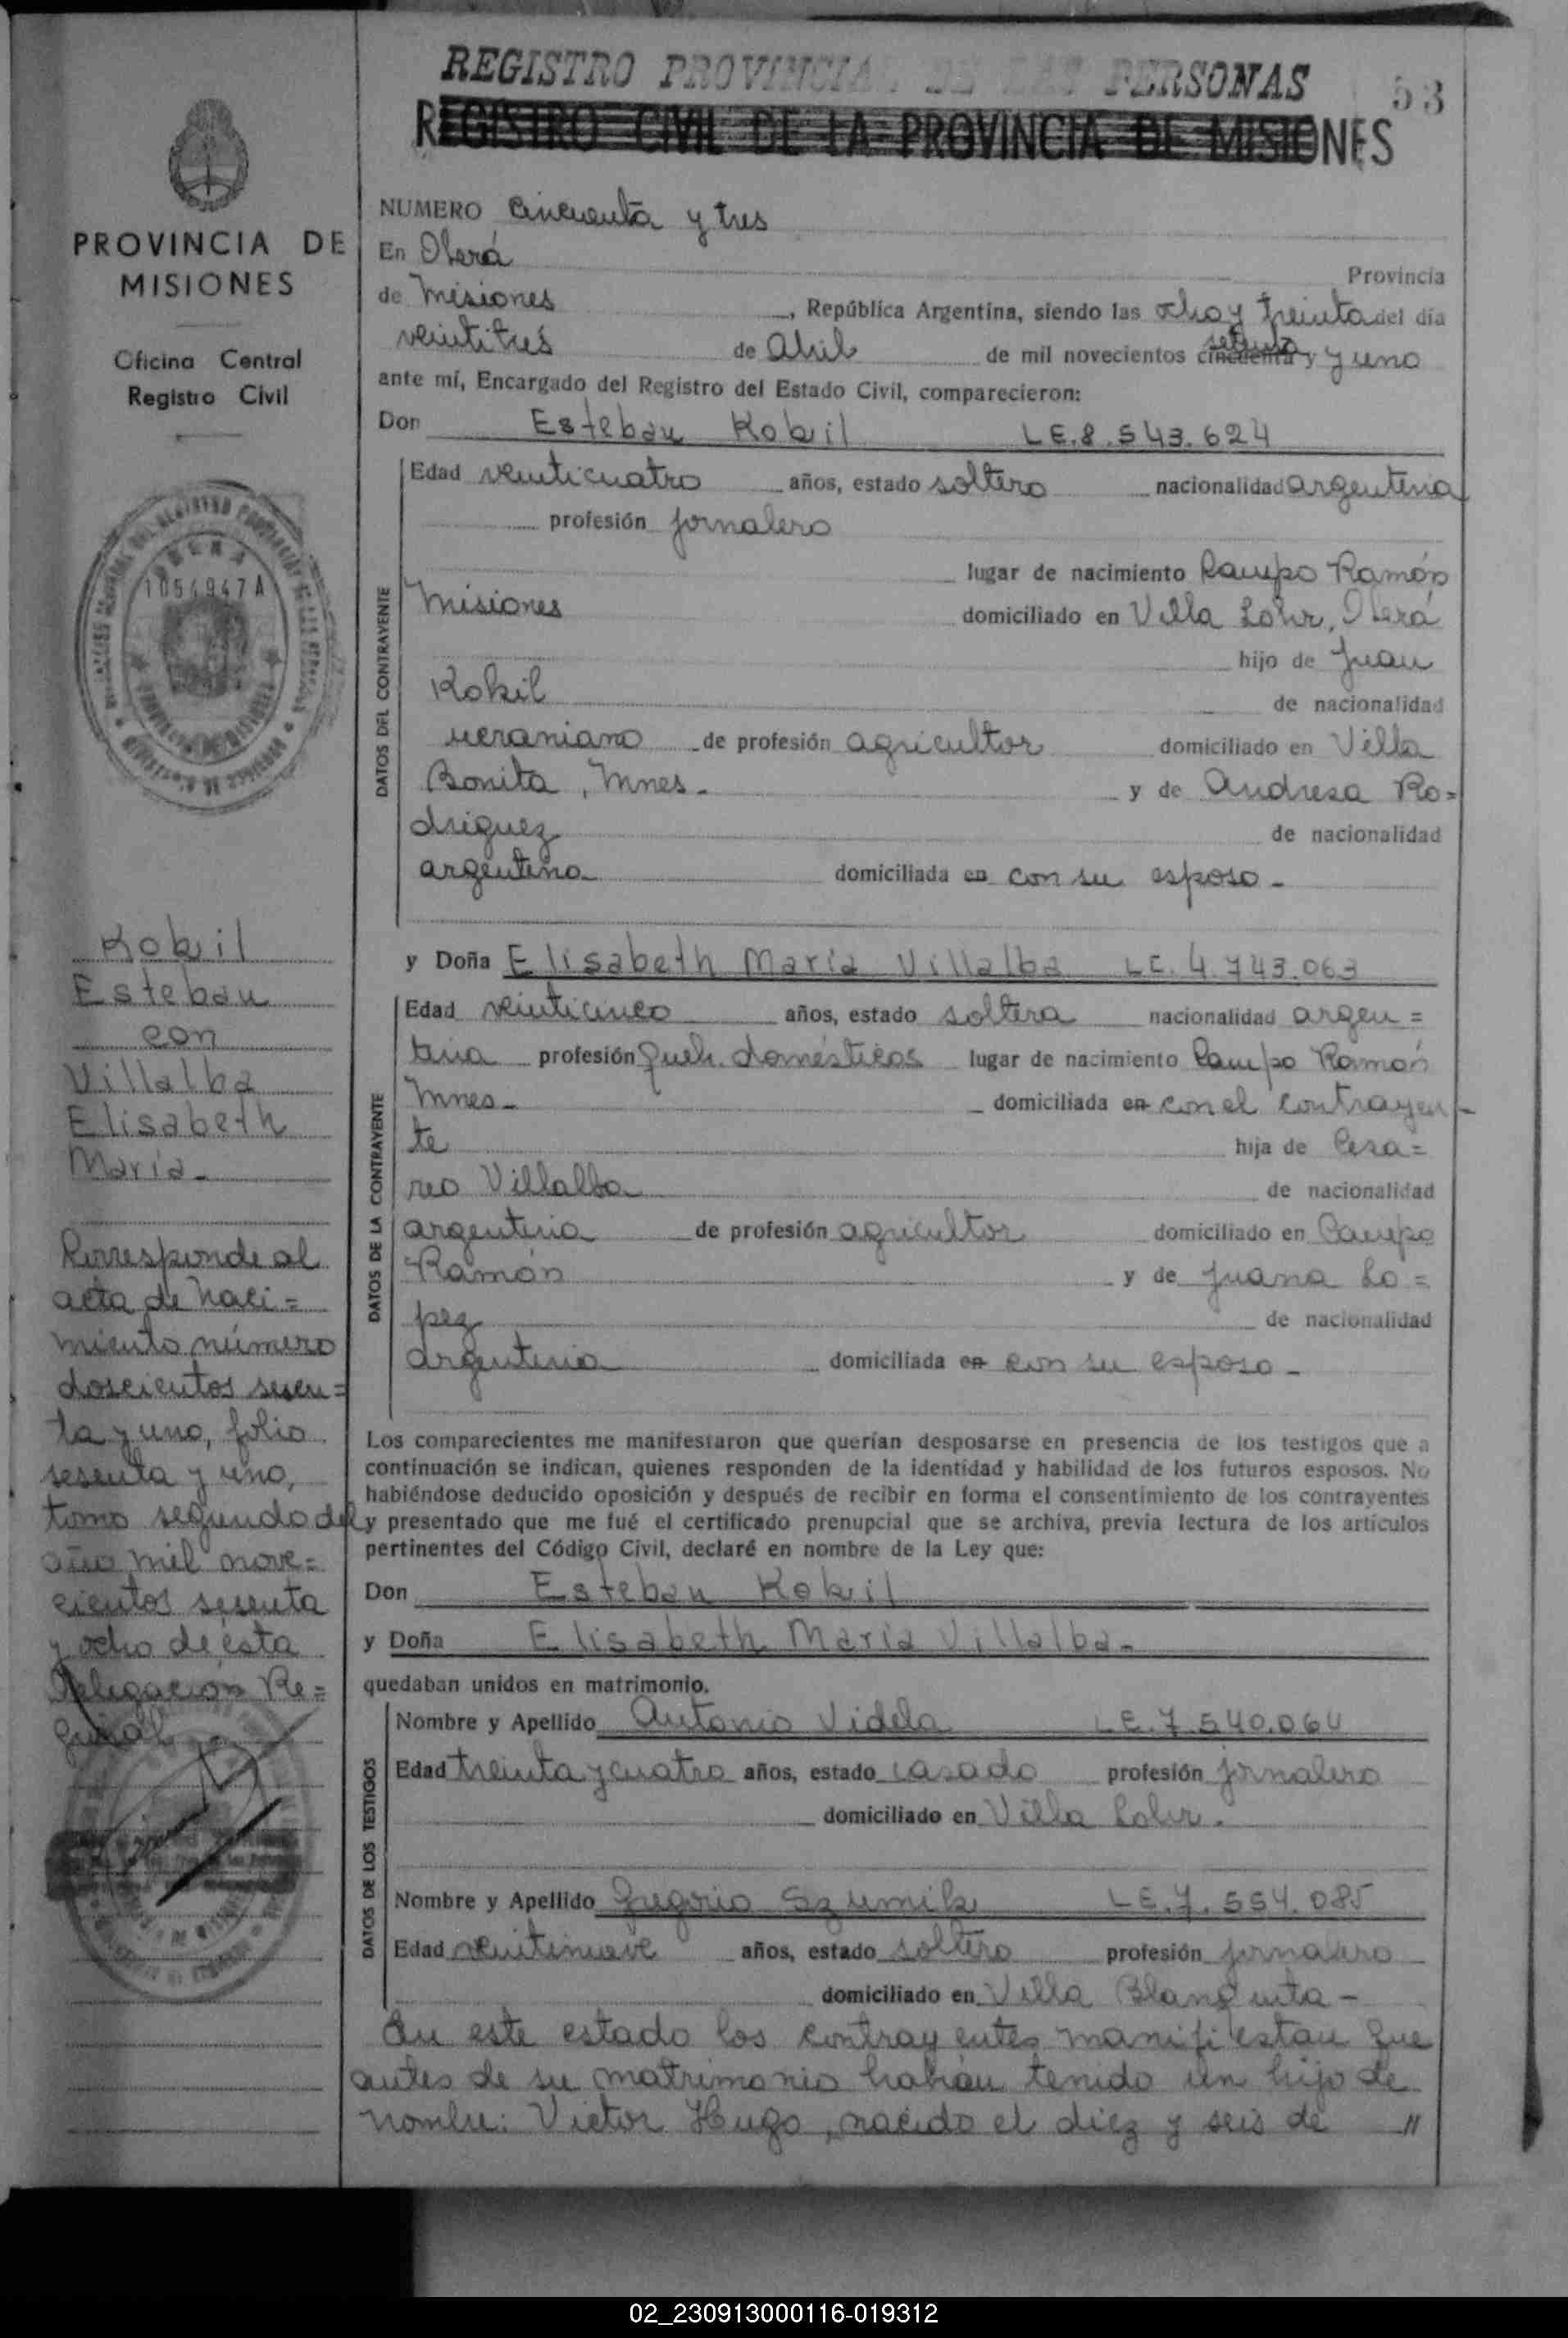 REGISTRO PROVINCIAL DE LAS PERSONAS
53
REGISTRO CIVIL DE LA PROVINCIA DE MISIONES
PROVINCIA DE
MISIONES
Oficina Central
Registro Civil
1054947A
Kobil
Esteban
con
Villalba
Elisabeth
María-
Corresponde al
acta de naci=
miento número
doscientos sesen=
ta y uno, folio
sesenta y uno,
tomo segundo del
año mil nove=
cientos sesenta
y ocho de ésta
Delegación Re=
gional
NUMERO cincuenta y tres
En Oberá
Provincia
de Misiones, República Argentina, siendo las ocho y treinta del día
veintitrés de Abril de mil novecientos cincuenta y setenta y uno
ante mí, Encargado del Registro del Estado Civil, comparecieron:
Don Esteban Kobil LE.8.543.624
DATOS DEL CONTRAYENTE
Edad veinticuatro años, estado soltero nacionalidad argentina
profesión jornalero
lugar de nacimiento Campo Ramón
Misiones domiciliado en Villa Lohr, Oberá
hijo de Juan
Kobil de nacionalidad
ucraniano de profesión agricultor domiciliado en Villa
Bonita, Mnes.- y de Andresa Ro=
driguez de nacionalidad
argentina domiciliada en con su esposo-
y Doña Elisabeth María Villalba LC.4.743.063
DATOS DE LA CONTRAYENTE
Edad veinticinco años, estado soltera nacionalidad argen=
tina profesión Queh. domésticos lugar de nacimiento Campo Ramón
Mnes- domiciliada en con el contrayen-
te hija de Cesa=
reo Villalba de nacionalidad
argentina de profesión agricultor domiciliado en Campo
Ramón y de Juana Lo=
pez de nacionalidad
argentina domiciliada en con su esposo-
Los comparecientes me manifestaron que querían desposarse en presencia de los testigos que a
continuación se indican, quienes responden de la identidad y habilidad de los futuros esposos. No
habiéndose deducido oposición y después de recibir en forma el consentimiento de los contrayentes
y presentado que me fué el certificado prenupcial que se archiva, previa lectura de los artículos
pertinentes del Código Civil, declaré en nombre de la Ley que:
Don Esteban Kobil
y Doña Elisabeth María Villalba-
quedaban unidos en matrimonio.
DATOS DE LOS TESTIGOS
Nombre y Apellido Antonio Videla LE.7.540.064
Edad treinta y cuatro años, estado casado profesión jornalero
domiciliado en Villa Lohr.
Nombre y Apellido Gregorio Szumik LE.7.554.085
Edad veintinueve años, estado soltero profesión jornalero
domiciliado en Villa Blanquita-
En este estado los contrayentes manifiestan que
antes de su matrimonio habían tenido un hijo de
nombre: Victor Hugo, nacido el diez y seis de //
02_230913000116-019312